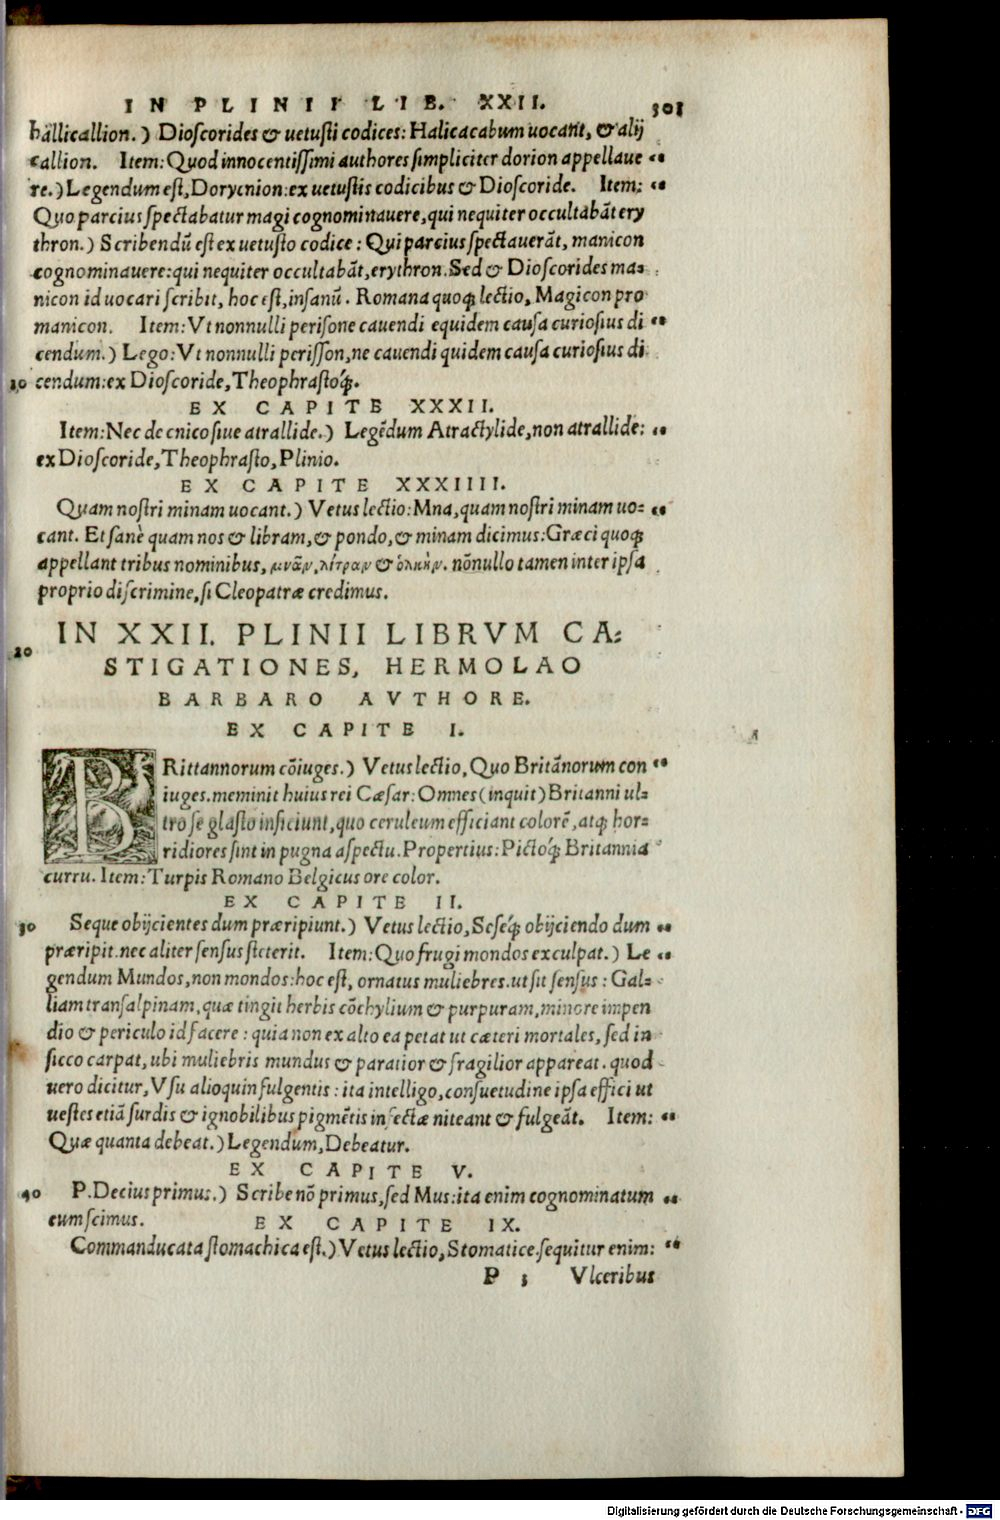 IN PLINII LIB. XXII. 301
hallicallion.) Dioscorides & uetusti codices: Halicacabum uocant, & alij
callion. Item: Quod innocentissimi authores simpliciter dorion appellaue „
re.) Legendum est, Dorycnion: ex uetustis codicibus & Dioscoride. Item: „
Quo parcius spectabatur magi cognominauere, qui nequiter occultabāt ery
thron.) Scribendū est ex uetusto codice: Qui parcius spectauerāt, manicon
cognominauere: qui nequiter occultabāt, erythron. Sed & Dioscorides ma=
nicon id uocari scribit, hoc est, insanū. Romana quoq; lectio, Magicon pro
manicon. Item: Vt nonnulli perisone cauendi equidem causa curiosius di „
cendum.) Lego: Vt nonnulli perisson, ne cauendi quidem causa curiosius di
10 cendum: ex Dioscoride, Theophrastoq́;.
EX CAPITE XXXII.
Item: Nec de cnico siue atrallide.) Legēdum Atractylide, non atrallide: „
ex Dioscoride, Theophrasto, Plinio.
EX CAPITE XXXIIII.
Quam nostri minam uocant.) Vetus lectio: Mna, quam nostri minam uo= „
cant. Et sanè quam nos & libram, & pondo, & minam dicimus: Græci quoq;
appellant tribus nominibus, μνᾶν, λίτραν & ὁλκὴν. nōnullo tamen inter ipsa
proprio discrimine, si Cleopatræ credimus.
IN XXII. PLINII LIBRVM CA=
20
STIGATIONES, HERMOLAO
BARBARO AVTHORE.
EX CAPITE I.
BRittannorum cōiuges.) Vetus lectio, Quo Britānorum con „
iuges. meminit huius rei Cæsar: Omnes (inquit) Britanni ul=
tro se glasto inficiunt, quo ceruleum efficiant colorē, atq; hor=
ridiores sint in pugna aspectu. Propertius: Pictoq́; Britannia
curru. Item: Turpis Romano Belgicus ore color.
EX CAPITE II.
30 Seque obijcientes dum præripiunt.) Vetus lectio, Seseq́; obijciendo dum „
præripit. nec aliter sensus steterit. Item: Quo frugi mondos exculpat.) Le „
gendum Mundos, non mondos: hoc est, ornatus muliebres. ut sit sensus: Gal=
liam transalpinam, quæ tingit herbis cōchylium & purpuram, minore impen
dio & periculo id facere: quia non ex alto ea petat ut cæteri mortales, sed in
sicco carpat, ubi muliebris mundus & paratior & fragilior appareat. quod
uero dicitur, Vsu alioquin fulgentis: ita intelligo, consuetudine ipsa effici ut
uestes etiā surdis & ignobilibus pigmētis infectæ niteant & fulgeāt. Item: „
Quæ quanta debeat.) Legendum, Debeatur.
EX CAPITE V.
40 P. Decius primus.) Scribe nō primus, sed Mus: ita enim cognominatum „
eum scimus. EX CAPITE IX.
Commanducata stomachica est.) Vetus lectio, Stomatice. sequitur enim: „
P 3 Vlceribus
Digitalisierung gefördert durch die Deutsche Forschungsgemeinschaft - DFG